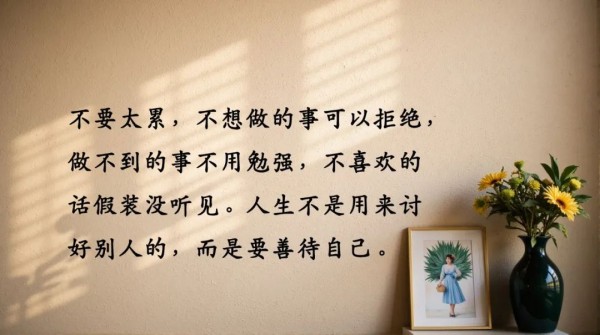 不要太累，不想做的事可以拒绝，
做不到的事不用勉强，不喜欢的
话假装没听见。人生不是用来讨
好别人的，而是要善待自己。